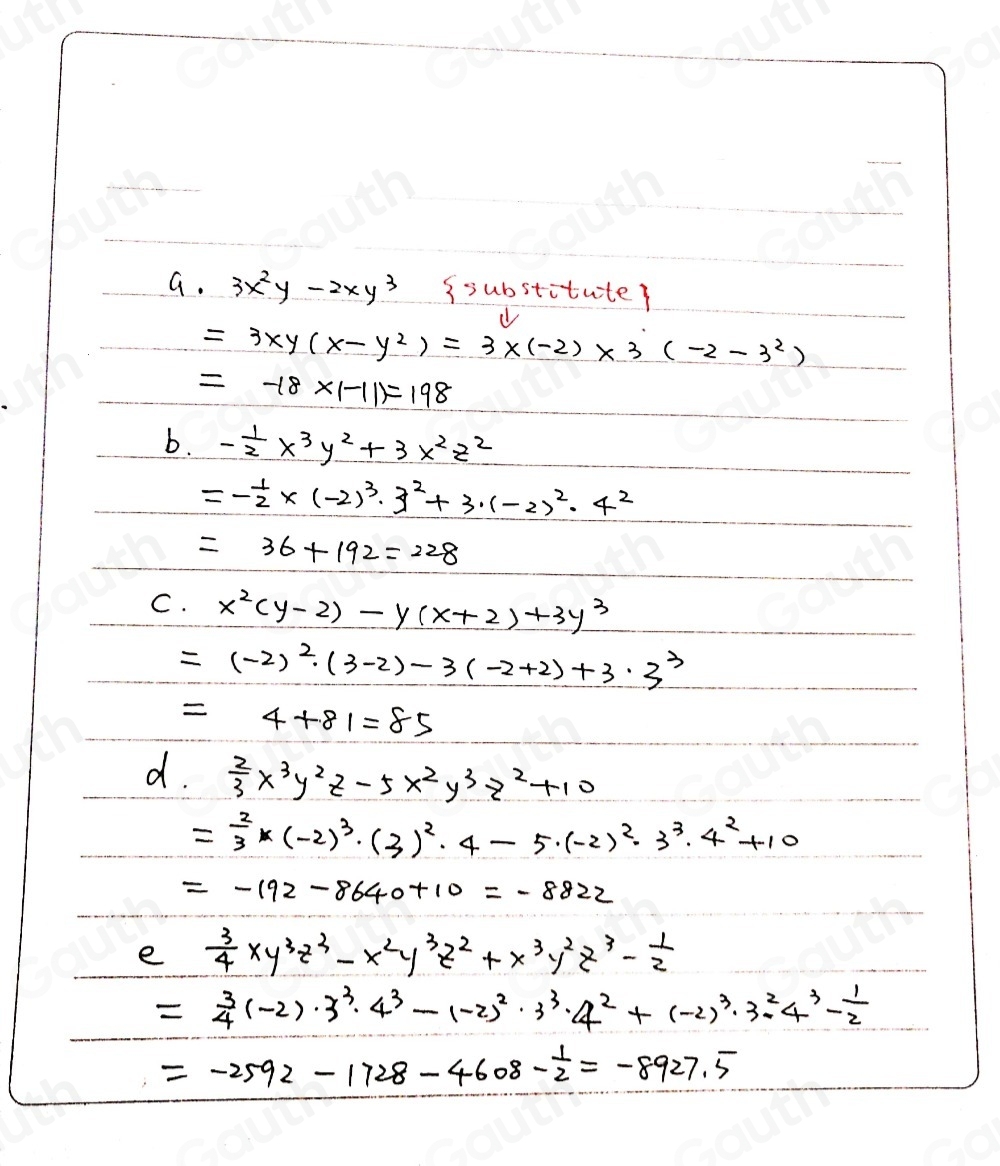 a. 3x²y - 2xy³ {substitute}
↓
= 3xy(x-y²) = 3×(-2)×3(-2-3²)
= -18×(-11)=198
b. -1/2 x³y² + 3x²z²
= -1/2 × (-2)³·3² + 3·(-2)²·4²
= 36+192=228
c. x²(y-2) - y(x+2) + 3y³
= (-2)²·(3-2) - 3(-2+2) + 3·3³
= 4+81=85
d. 2/3 x³y²z - 5x²y³z² + 10
= 2/3 × (-2)³·(3)²·4 - 5·(-2)²·3³·4² + 10
= -192 - 8640 + 10 = -8822
e 3/4 xy³z³ - x²y³z² + x³y²z³ - 1/2
= 3/4 (-2)·3³·4³ - (-2)²·3³·4² + (-2)³·3²·4³ - 1/2
= -2592 - 1728 - 4608 - 1/2 = -8927.5
Gauth